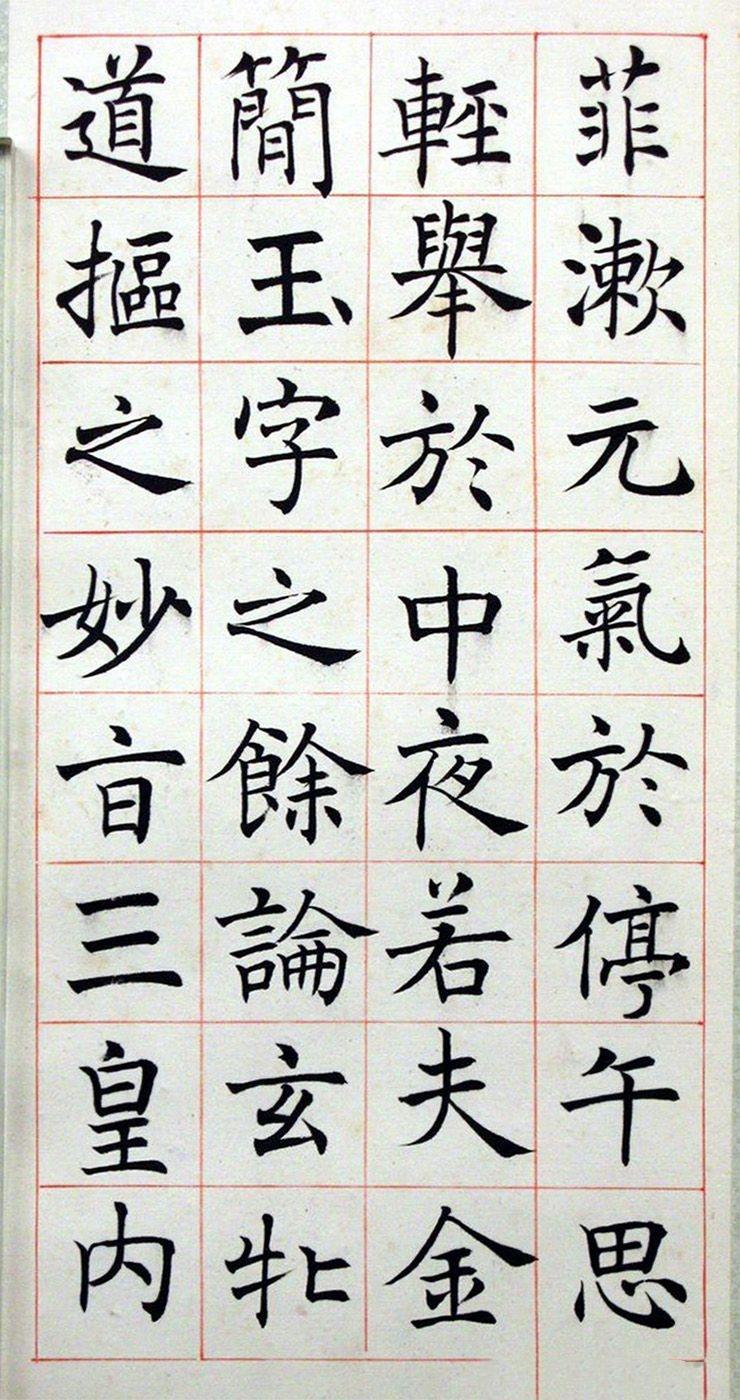 菲漱元氣於停午思
輕舉於中夜若夫金
簡玉字之餘論玄牝
道摳之妙㫖三皇内